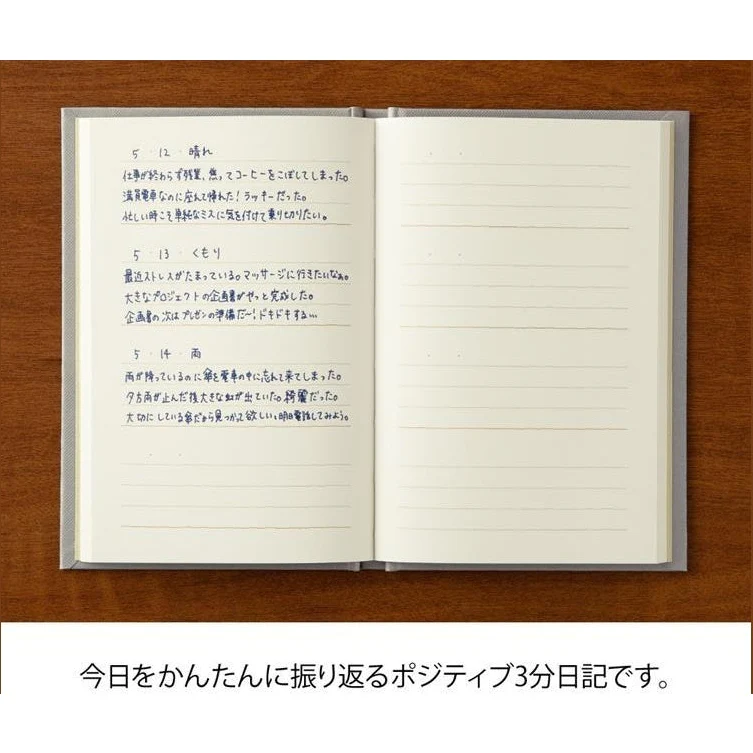 5・12・晴れ
仕事が終わらず残業、焦ってコーヒーをこぼしてしまった。
満員電車なのに座れて帰れた！ラッキーだった。
忙しい時こそ単純なミスに気を付けて乗り切りたい。
5・13・くもり
最近ストレスがたまっている。マッサージに行きたいなぁ。
大きなプロジェクトの企画書がやっと完成した。
企画書の次はプレゼンの準備だ〜！ドキドキする…
5・14・雨
雨が降っているのに傘を電車の中に忘れて来てしまった。
夕方雨が止んだ後大きな虹が出ていた。綺麗だった。
大切にしている傘だから見つかって欲しい、明日電話してみよう。
今日をかんたんに振り返るポジティブ3分日記です。